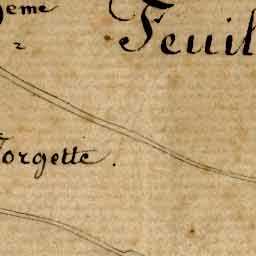 eme
2
Feuil
orgette.